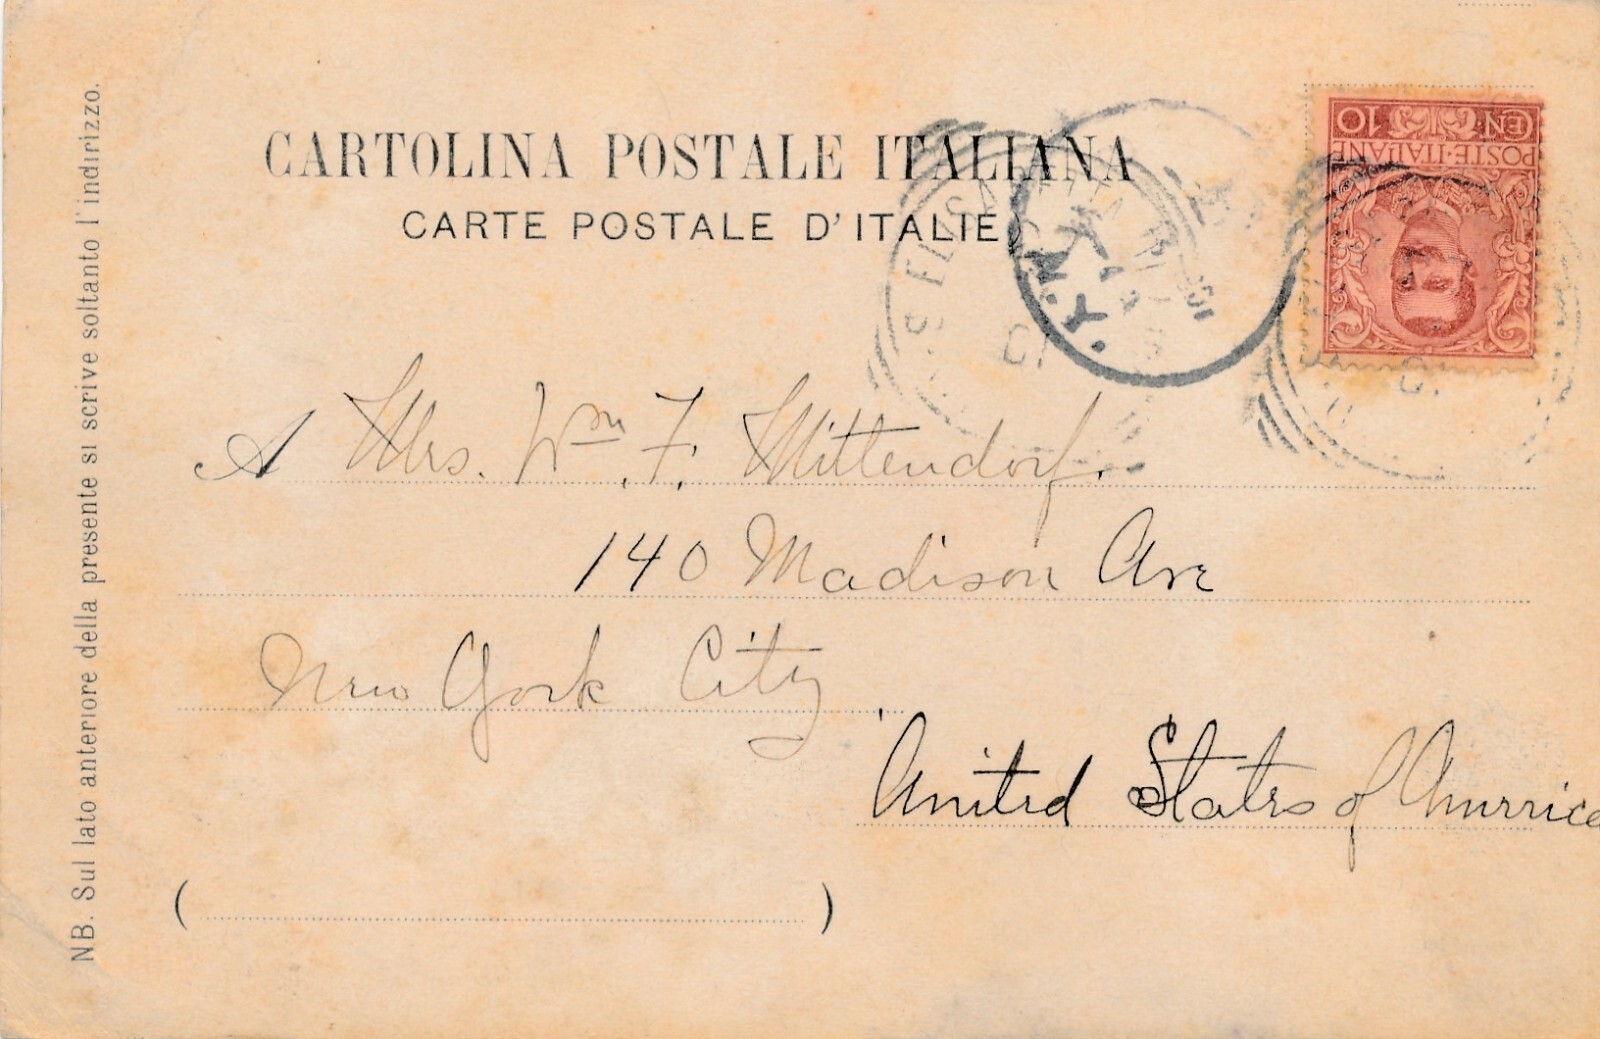 CARTOLINA POSTALE ITALIANA
CARTE POSTALE D'ITALIE
POSTE·ITALIANE
CEN·10
N.Y.
A Mrs. Wm. F. Mittendorf.
140 Madison Ave
New York City
United States of America
( )
NB. Sul lato anteriore della presente si scrive soltanto l'indirizzo.